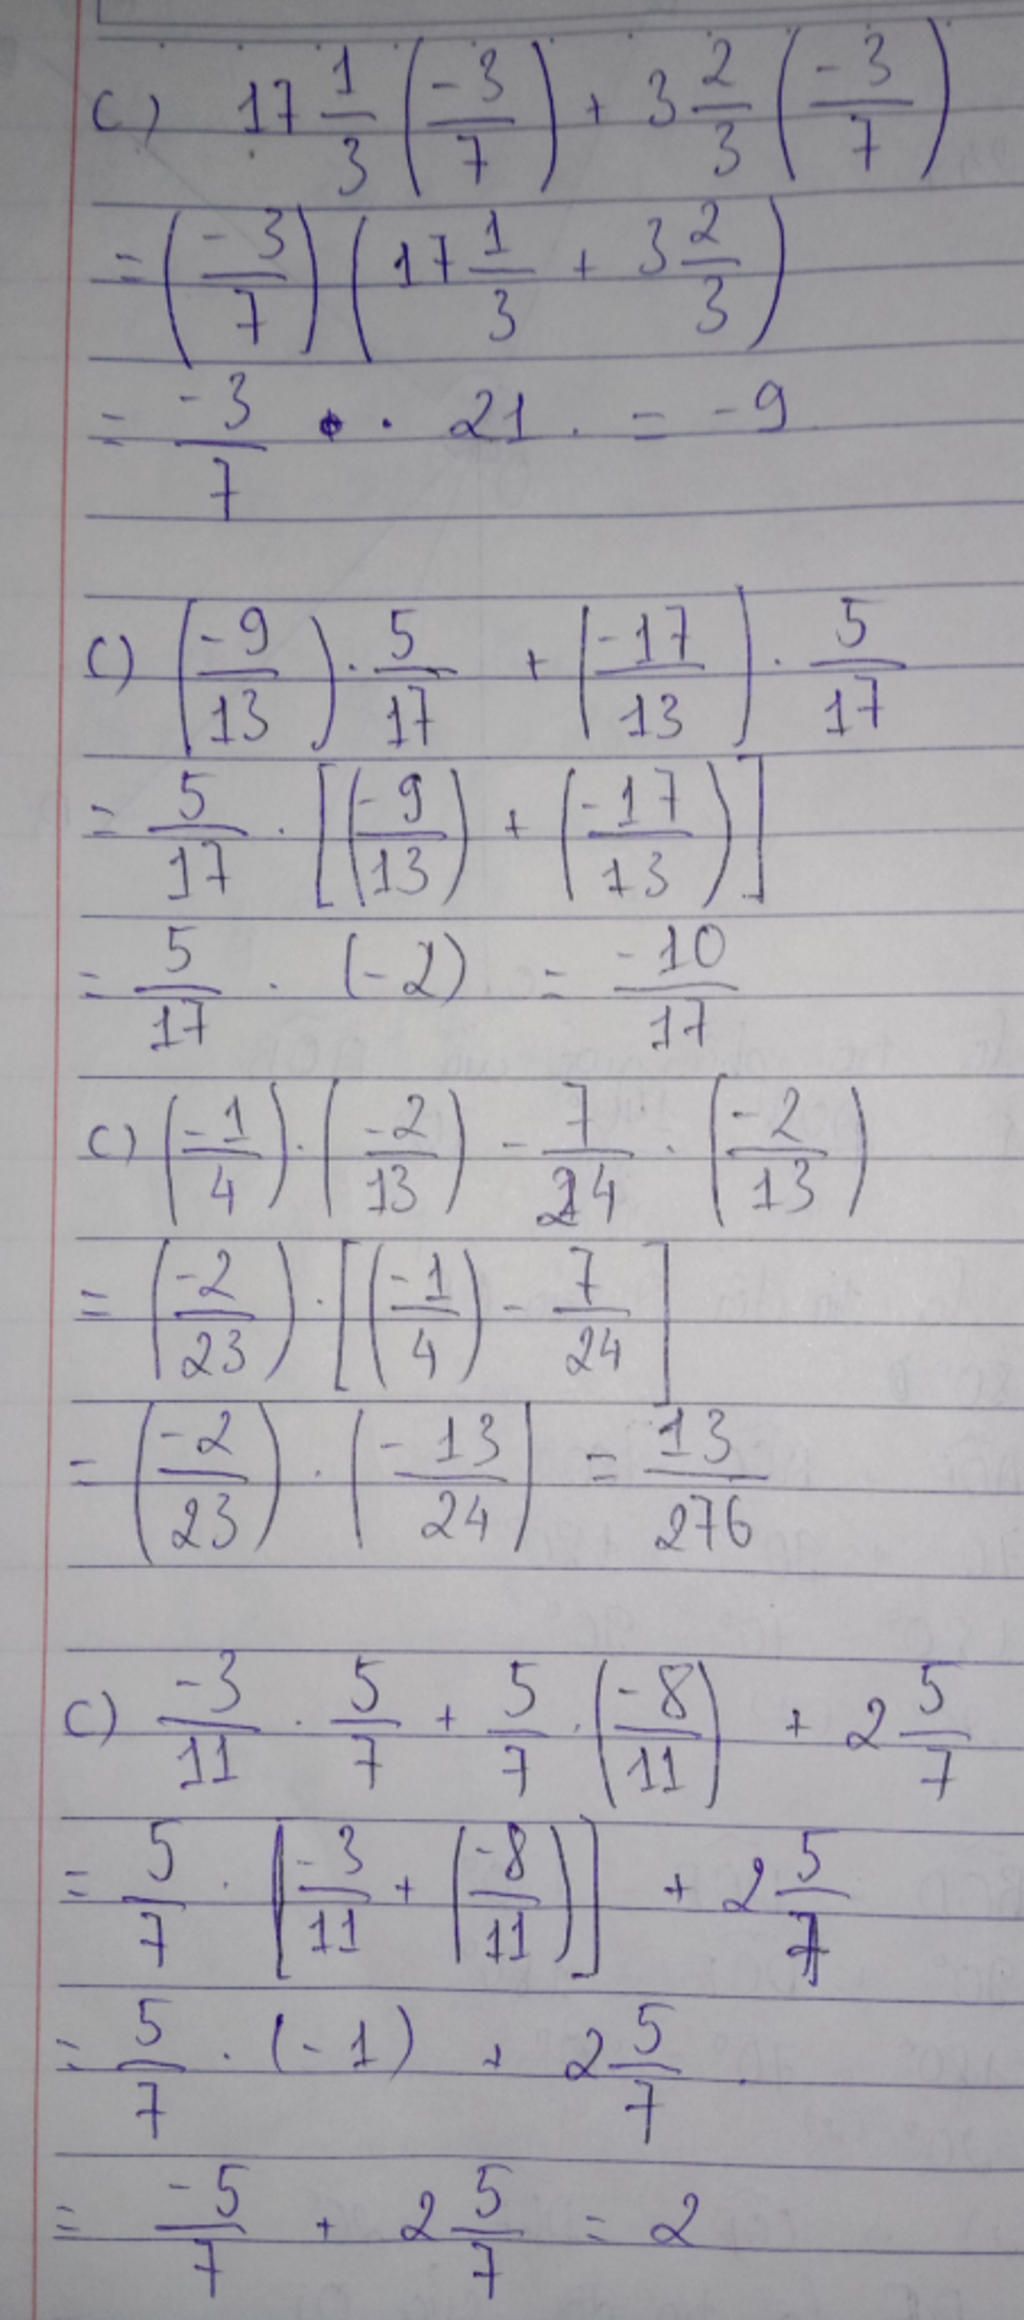 c) 17 1/3 (-3/7) + 3 2/3 (-3/7)
= (-3/7) (17 1/3 + 3 2/3)
= -3/7 · 21 = -9
c) (-9/13) · 5/17 + (-17/13) · 5/17
= 5/17 · [(-9/13) + (-17/13)]
= 5/17 · (-2) = -10/17
c) (-1/4) · (-2/13) - 7/24 · (-2/13)
= (-2/23) · [(-1/4) - 7/24]
= (-2/23) · (-13/24) = 13/276
c) -3/11 · 5/7 + 5/7 · (-8/11) + 2 5/7
= 5/7 · [-3/11 + (-8/11)] + 2 5/7
= 5/7 · (-1) + 2 5/7
= -5/7 + 2 5/7 = 2